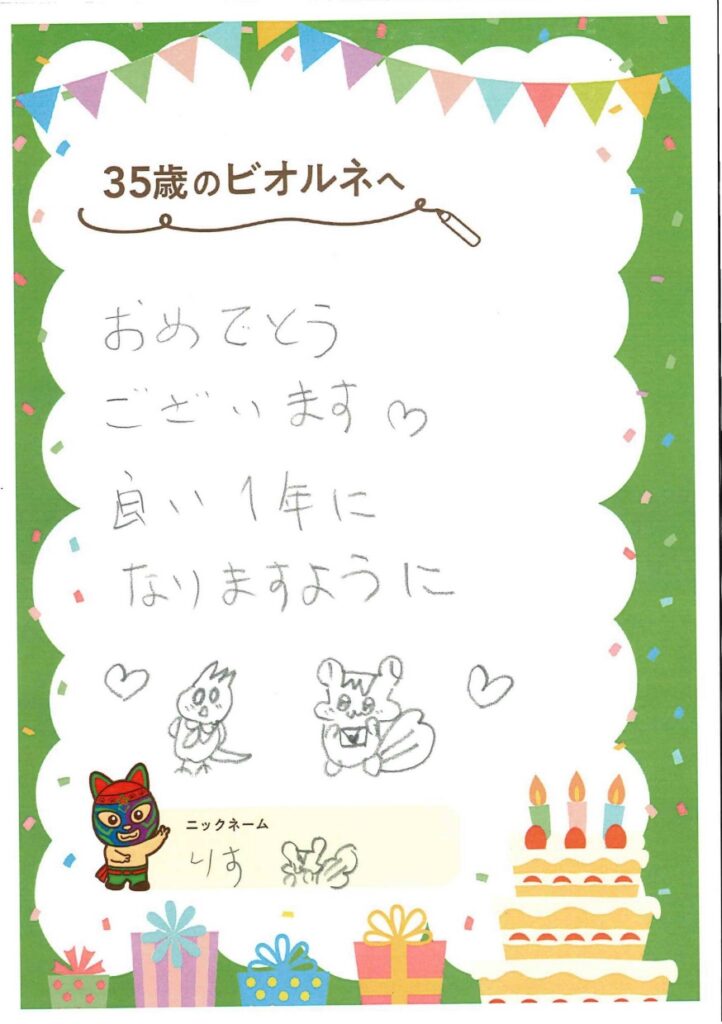 35歳のビオルネへ
おめでとう
ございます♡
良い1年に
なりますように
ニックネーム
りす